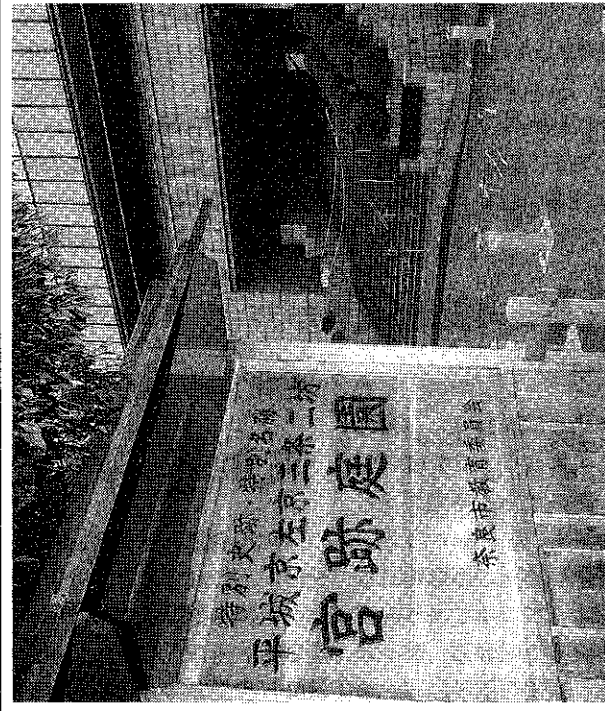 特別史跡 特別名勝
平城京左京三条二坊
宮跡庭園
奈良市教育委員会